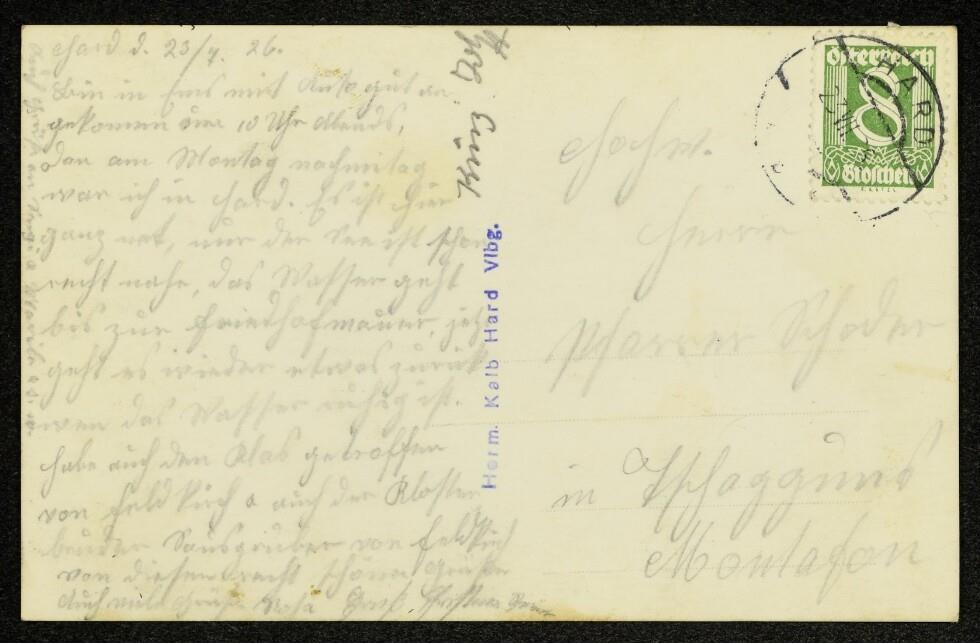 Hard d. 23/7. 26.
Bin in Ems mit Auto gut an
gekommen um 10 Uhr Abends,
dan am Montag nachmitag
war ich in Hard. Es ist hier
ganz net, nur der See ist schon
recht nahe, das Wasser geht
bis zur Friedhofmauer, jetz
geht es wieder etwas zurück
wen das Wasser ruhig ist.
habe auch den Klas getroffen
von Feldkirch & auch der Kloster
bruder Sausgruber von Feldkirch
von diesen recht schöne Grüße
Auch viele Grüße
Herm. Kalb Hard Vlbg.
Österreich
8
Groschen
HARD
Hochw.
Herrn
Pfarrer Schoder
in Tschagguns
Montafon